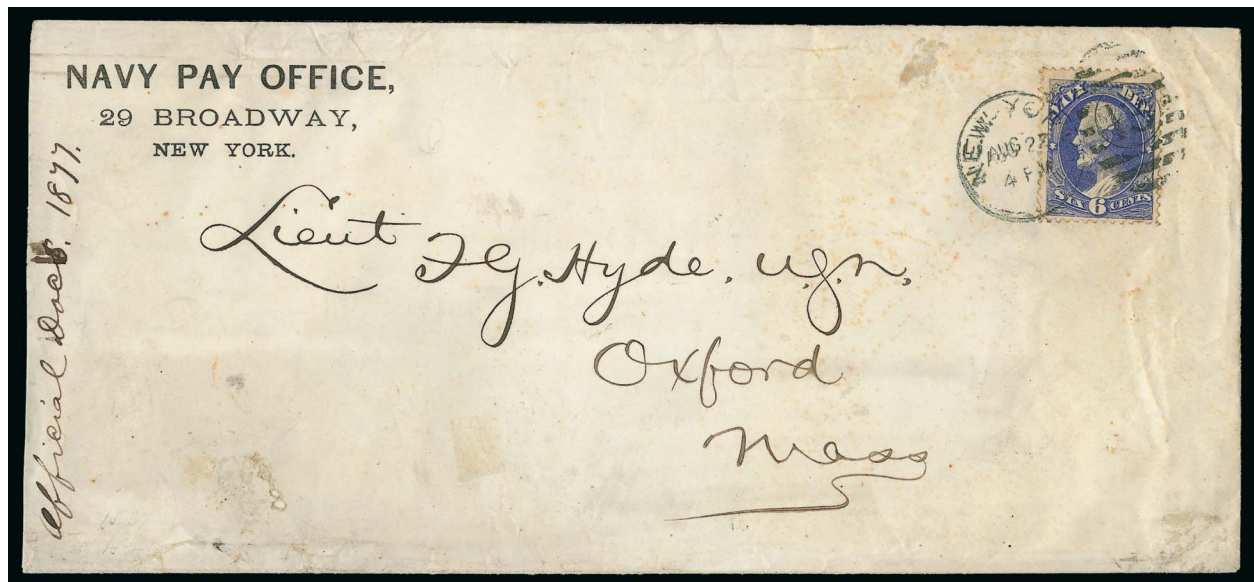 NAVY PAY OFFICE,
29 BROADWAY,
NEW YORK.
Official Docs. 1877.
NEW-YO
AUG 27
4 PM
NAVY DEPT
SIX 6 CENTS
Lieut F G. Hyde. U.S.N.
Oxford
Mass